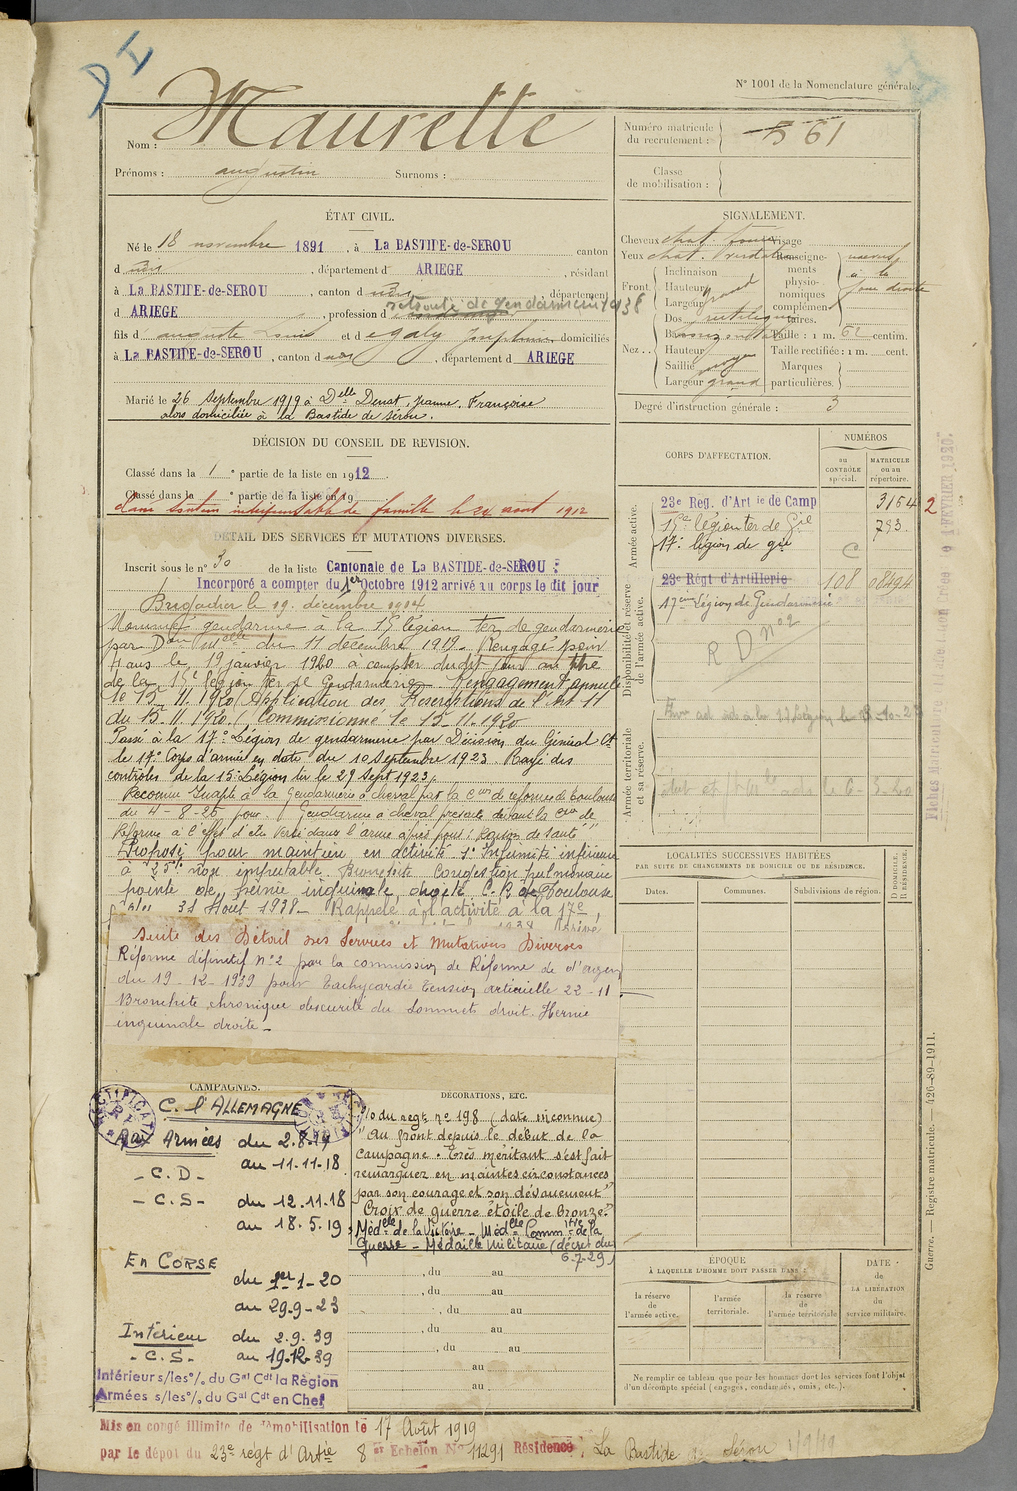 DI
N° 1001 de la Nomenclature générale.
Nom : Maurette
Prénoms : augustin Surnoms :
Numéro matricule du recrutement : 561
Classe de mobilisation :
ÉTAT CIVIL.
Né le 18 novembre 1891, à La BASTIDE-de-SEROU canton
d udis, département d ARIEGE, résidant
à La BASTIDE-de-SEROU, canton d udis département
d ARIEGE, profession d retraité de gendarmerie 1936
fils d auguste Louis et d egaly Joséphine domiciliés
à La BASTIDE-de-SEROU, canton d udis, département d ARIEGE
Marié le 26 Septembre 1919 à Delle Denat, Jeanne, Françoise
alors domiciliée à la Bastide de Sérou.
SIGNALEMENT.
Cheveux chat foncé Visage
Yeux chat. verdâtre
Front Inclinaison
Hauteur grand
Largeur
Nez Dos rectiligne
Base
Hauteur
Saillie moyen
Largeur grand
Renseignements physionomiques complémentaires.
naevus à la joue droite
Taille : 1 m. 62 centim.
Taille rectifiée : 1 m. cent.
Marques particulières.
Degré d'instruction générale : 3
DÉCISION DU CONSEIL DE REVISION.
Classé dans la 1e partie de la liste en 1912
Classé dans la e partie de la liste en 19
dans soutien indispensable de famille le 24 août 1912
DÉTAIL DES SERVICES ET MUTATIONS DIVERSES.
Inscrit sous le n° 30 de la liste Cantonale de La BASTIDE-de-SEROU :
Incorporé a compter du 1er Octobre 1912 arrivé au corps le dit jour
Brigadier le 19 décembre 1914
Nommé gendarme à la 15e légion ter de gendarmerie
par Don Mlle du 11 décembre 1919. Rengagé pour
4 ans le 19 janvier 1920 à compter dudit jour au titre
de la 15e légion ter de Gendarmerie. Rengagement annulé
le 15-11-1920 (Application des Prescriptions de l'Art 11
du 15-11-1920) Commissionné le 15-11-1920
Passé à la 17e Légion de gendarmerie par Décision du Général Ct
le 17e Corps d'armée en date du 10 septembre 1923. Rayé des
contrôles de la 15e Légion ter le 29 Sept 1923.
Reconnu Inapte à la Gendarmerie à cheval par la Con de réforme de Toulouse
du 4-8-26 pour "Gendarme à cheval présenté devant la Con de
Réforme à l'effet d'être versé dans l'arme à pied pour raison de santé"
Proposé pour maintien en activité 1° Infirmité inférieure
à 25% non imputable. Bronchite congestion pulmonaire
pointe de hernie inguinale droite C. R de Toulouse
31 Août 1938 - Rappelé à l'activité à la 17e
Suite des Détail des Services et Mutations Diverses
Réforme définitif n° 2 par la commission de Réforme de d'agen
du 19-12-1939 pour Tachycardie Tension artérielle 22-11
Bronchite chronique obscurité du sommet droit. Hernie
inguinale droite -
CORPS D'AFFECTATION.
NUMÉROS
au CONTRÔLE spécial.
MATRICULE ou au répertoire.
Armée active.
23e Reg. d'Artie de Camp 3154 2
15e légion ter de Gie 793
17e légion de gie C
Disponibilité et réserve de l'armée active.
23e Régt d'Artillerie 108 08494
17ème Légion de Gendarmerie
R D n° 2
Armée territoriale et sa réserve.
Fiches Matricule 1 FÉVRIER 1920.
LOCALITÉS SUCCESSIVES HABITÉES
PAR SUITE DE CHANGEMENTS DE DOMICILE OU DE RÉSIDENCE.
Dates. Communes. Subdivisions de région. D DOMICILE. R RÉSIDENCE.
CAMPAGNES.
RECTIFICATIF
C. l'ALLEMAGNE
Aux Armées du 2.8.14
- C.D - au 11.11.18
- C.S - du 12.11.18
au 18.5.19
En CORSE
du 1er-1-20
au 29.9-23
Intérieur du 2.9.39
- C.S. - au 19.12.39
Intérieur s/les°/. du Gal Cdt la Région
Armées s/les°/. du Gal Cdt en Chef
DECORATIONS, ETC.
o/o du regt n° 198 (date inconnue)
"Au front depuis le début de la
campagne. Très méritant s'est fait
remarquer en maintes circonstances
par son courage et son dévouement"
Croix de guerre étoile de bronze.
Médlle de la Victoire - Médlle Commtive de la
Guerre - Médaille Militaire (décret du
6-7-29)
, du au
, du au
, du au
, du au
, du au
au
au
ÉPOQUE
À LAQUELLE L'HOMME DOIT PASSER DANS :
la réserve de l'armée active.
l'armée territoriale.
la réserve de l'armée territoriale
DATE de LA LIBÉRATION du service militaire.
Ne remplir ce tableau que pour les hommes dont les services font l'objet
d'un décompte spécial (engagés, condamnés, omis, etc.).
Guerre. — Registre matricule. — 426-89-1911.
Mis en congé illimité de démobilisation le 17 Août 1919
par le dépôt du 23e regt d'Artie 8e Echelon No 11291 Résidence : La Bastide de Sérou 1/9/19